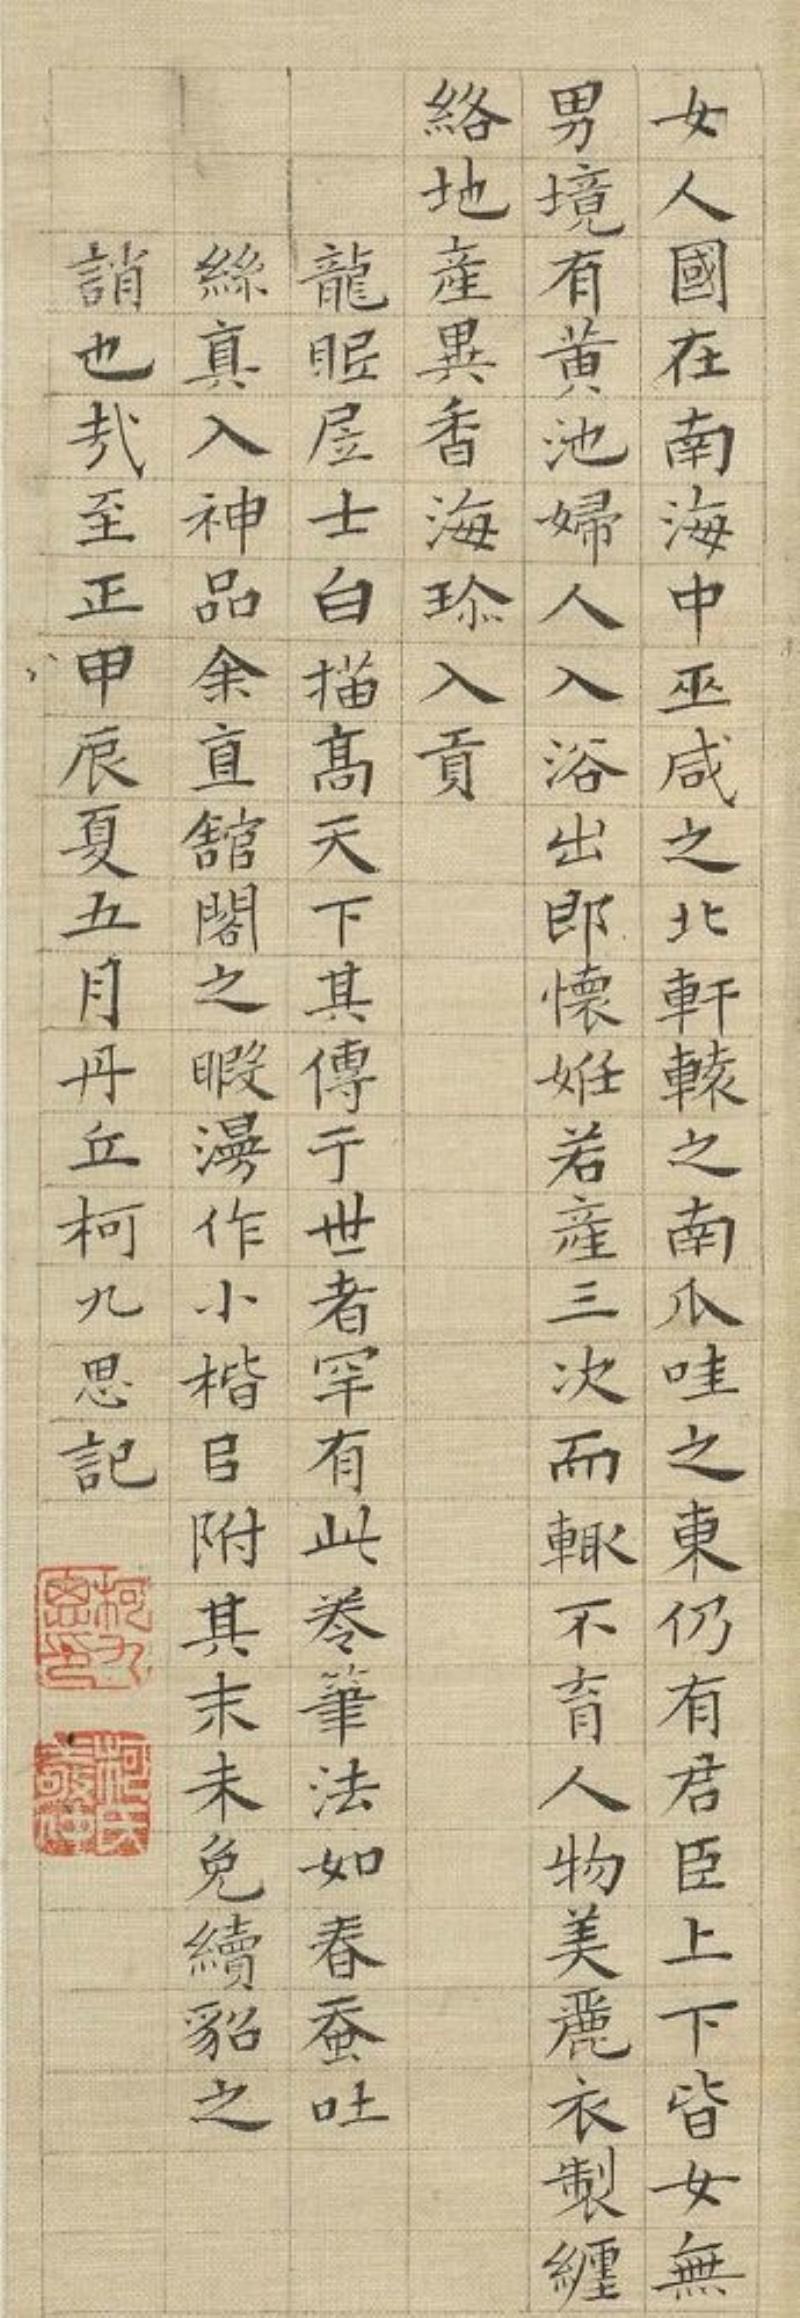 女人國在南海中巫咸之北軒轅之南爪哇之東仍有君臣上下皆女無
男境有黄池婦人入浴出即懷姙若產三次而輙不育人物美麗衣製纏
絡地產異香海珎入貢
龍眠居士白描髙天下其傳于世者罕有此卷筆法如春蚕吐
絲真入神品余直館閣之暇漫作小楷㠯附其末未免續貂之
誚也㢤至正甲辰夏五月丹丘柯九思記
柯九思印
柯氏敬仲